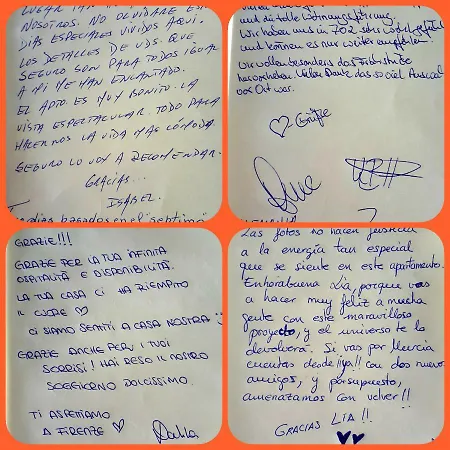 LUGAR TAN
NOSOTROS. NO OLVIDARE ESTOS
DÍAS ESPECIALES VIVIDOS AQUÍ.
LOS DETALLES DE UDS. QUE
SEGURO SON PARA TODOS IGUAL
A MI ME HAN ENCANTADO.
EL APTO. ES MUY BONITO. LA
VISTA ESPECTACULAR. TODO PARA
HACERNOS LA VIDA MAS CÓMODA.
SEGURO LO VOY A RECOMENDAR.
GRACIAS...
ISABEL.
basados en el "septimo
und die tolle Wohnungsführung.
Wir haben uns in 702 sehr wohl gefühlt
und können es nur weiter empfehlen.
Wir wollen besonders das Frühstück
hervorheben. Vielen Dank das so viel Auswahl
vor Ort war.
♡-Grüße
GRAZIE!!!
GRAZIE PER LA TUA INFINITA
OSPITALITÀ E DISPONIBILITÀ.
LA TUA CASA CI HA RIEMPITO
IL CUORE ♡
CI SIAMO SENTITI A CASA NOSTRA :)
GRAZIE ANCHE PER I TUOI
SORRISI! HAI RESO IL NOSTRO
SOGGIORNO DOLCISSIMO.
TI ASPETTIAMO
A FIRENZE ♡
Las fotos no hacen justicia
a la energía tan especial
que se siente en este apartamento.
Enhorabuena Lía, porque vas
a hacer muy feliz a mucha
gente con este maravilloso
proyecto, y el universo te lo
devolverá. Si vas por Murcia
cuentas desde ¡¡ya!! con dos nuevos
amigos, y por supuesto,
amenazamos con volver!!
GRACIAS LÍA!!
♥♥